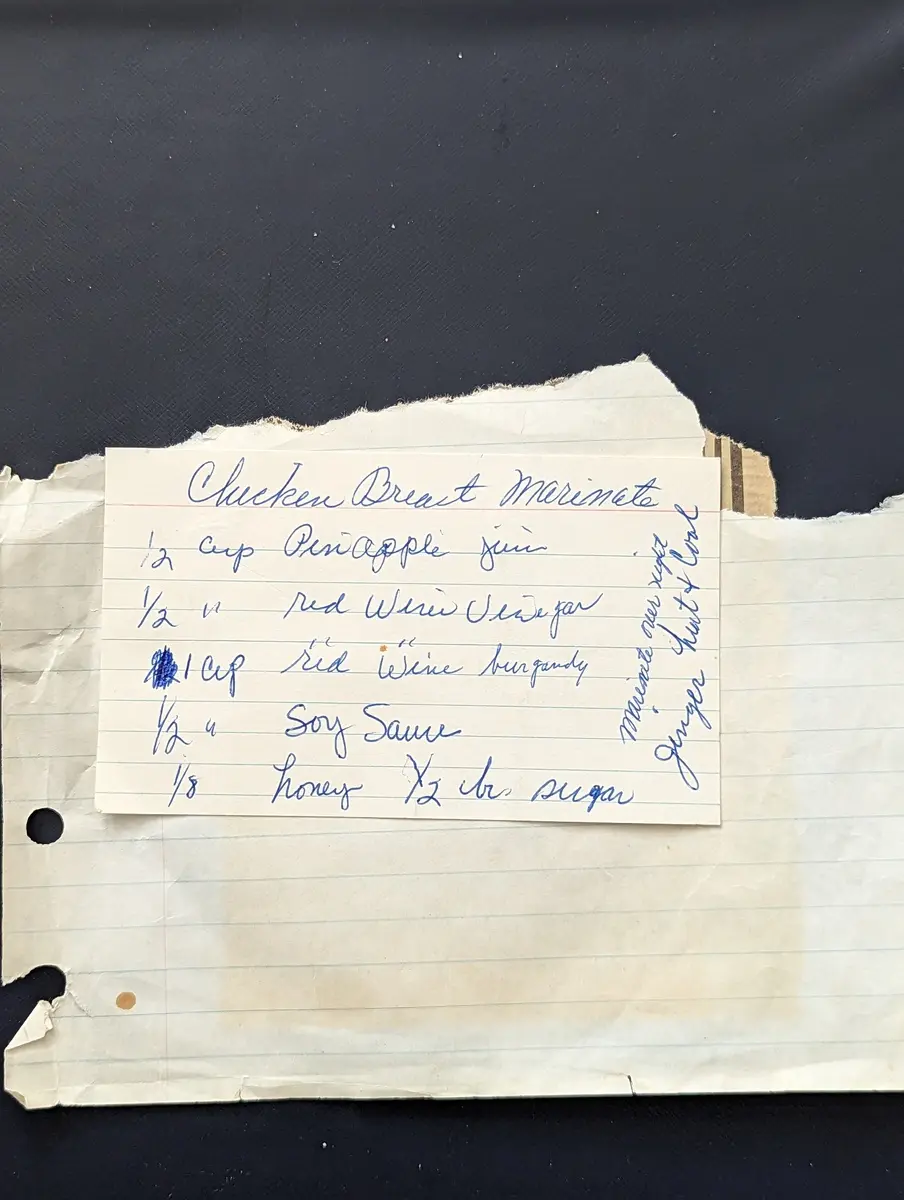 Chicken Breast Marinate
1/2 cup Pineapple juice
1/2 " red Wine Vinegar
1 cup red Wine burgandy
1/2 " Soy Sauce
1/8 honey 1/2 br. sugar
Marinate over night
Ginger heat & Cool